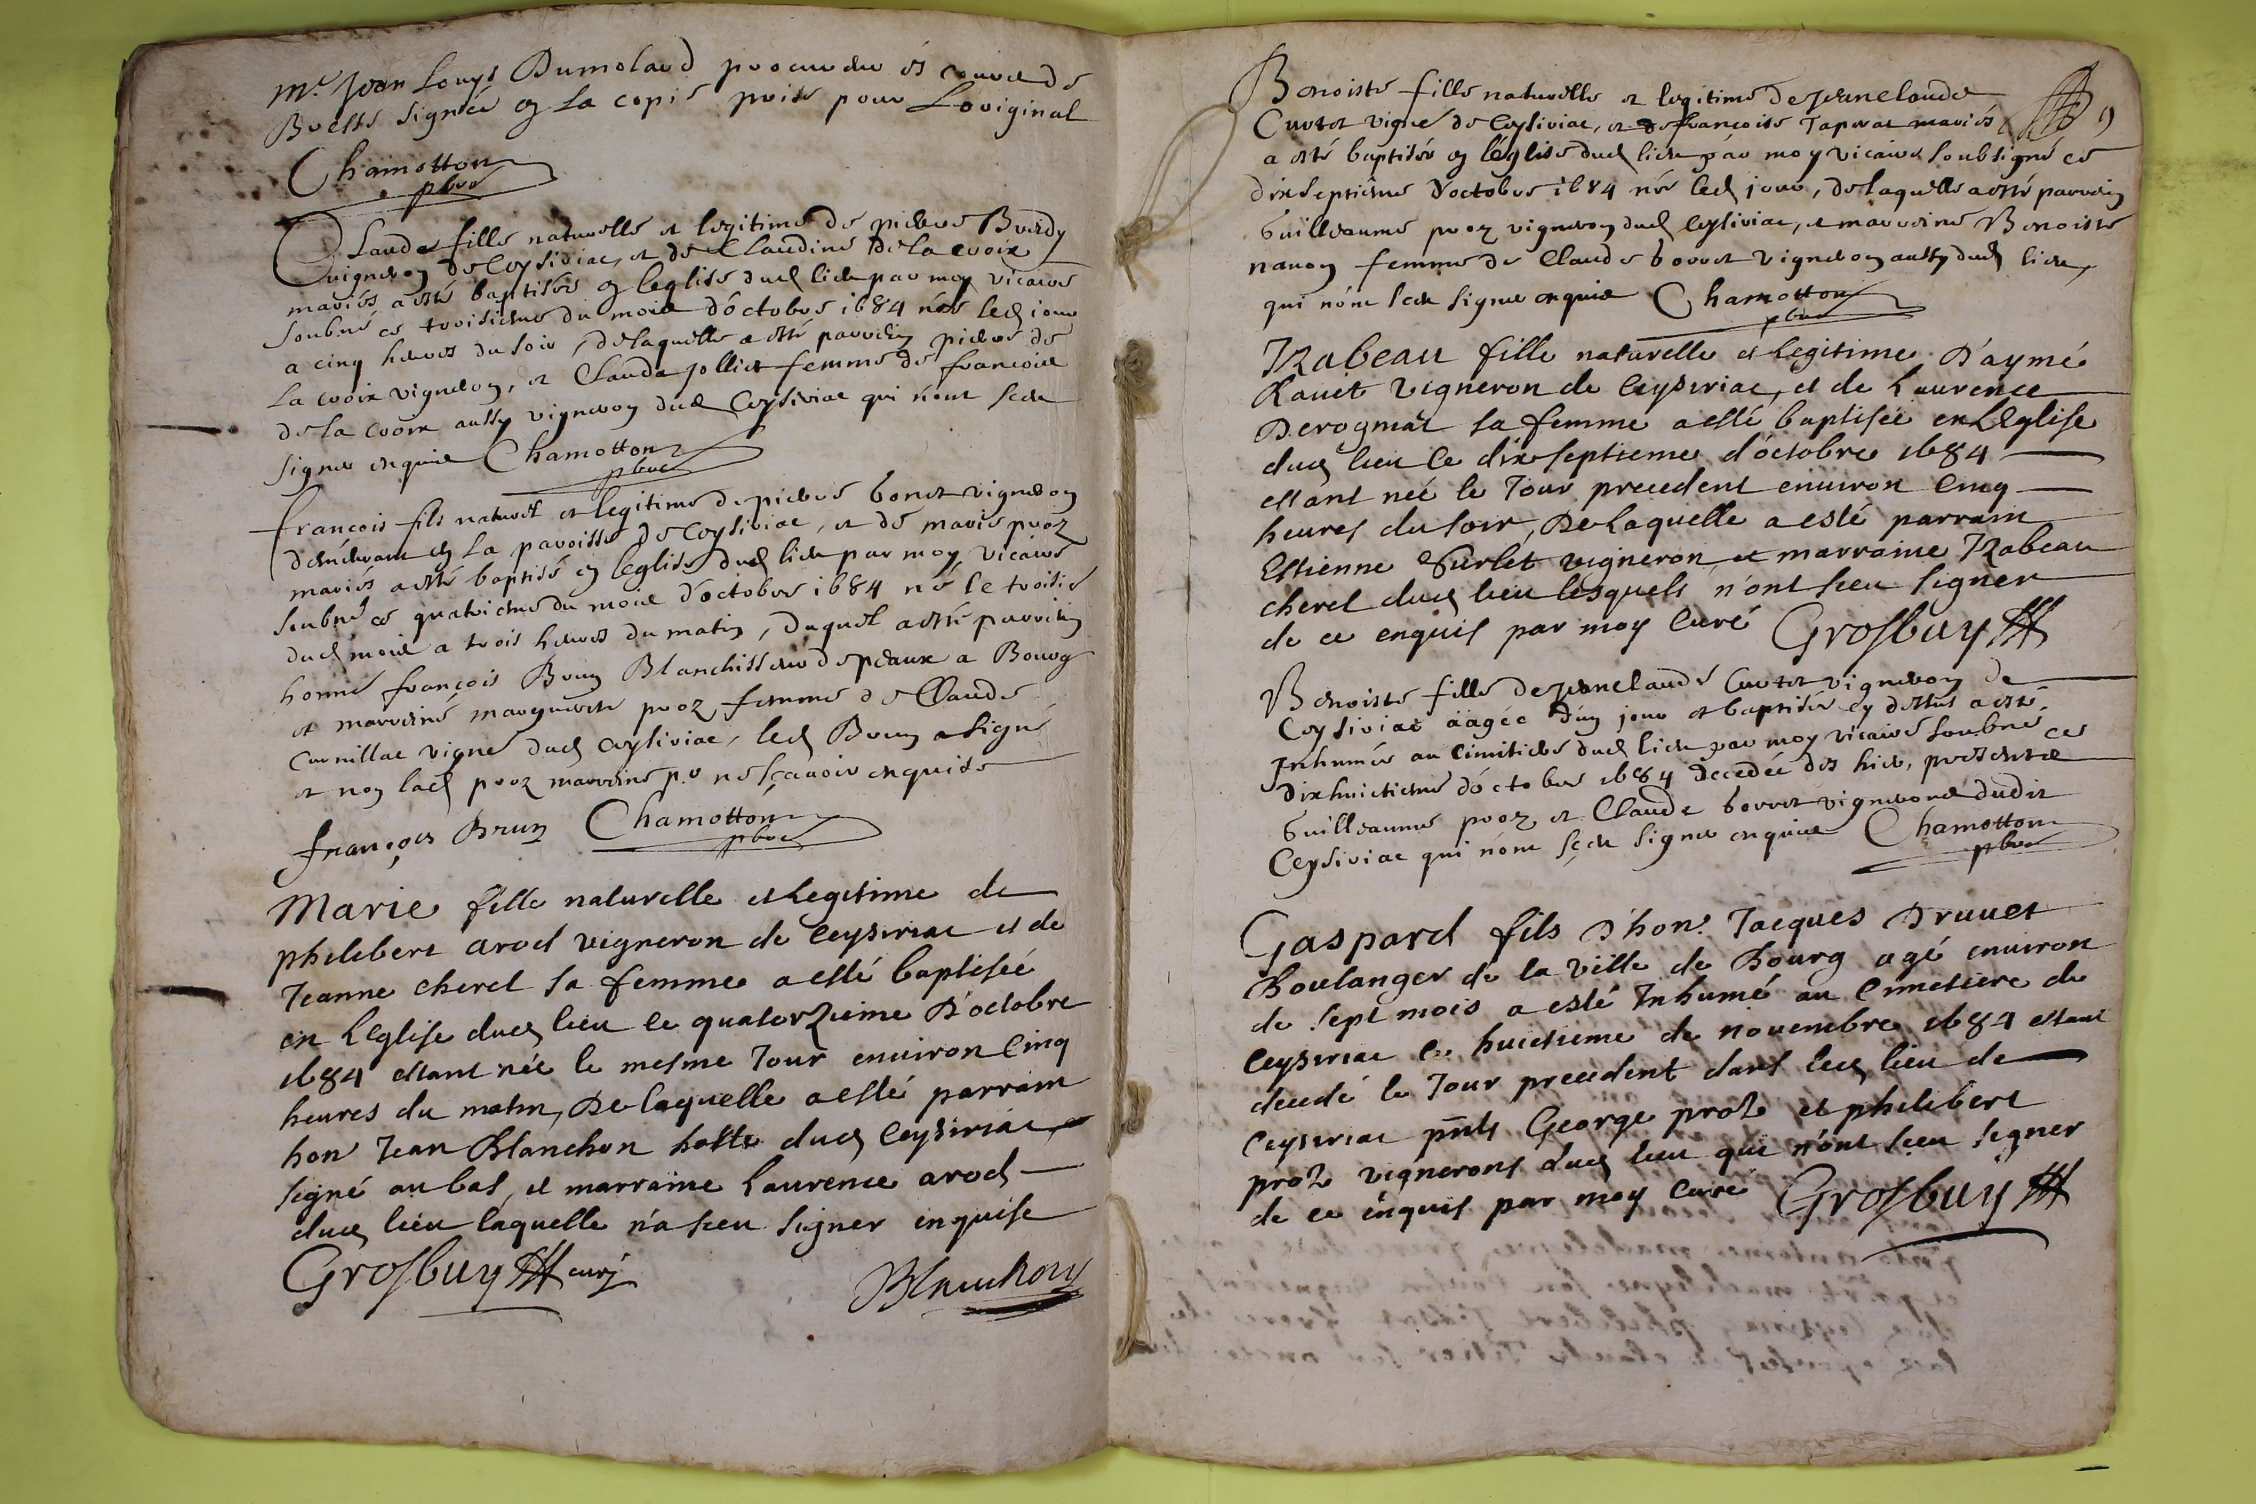 Mr Jean Louys Dumolard procureur és cours de
Bresse signée en la copie prise pour Loriginal
Chamotton
pbre
Clauda fille naturelle et legitime de pierre Buirdy
vigneron de Ceysiriac, et de Claudine De la croix
mariés a esté baptisée en leglise dud lieu par moy vicaire
soubné ce troisieme du mois d'octobre 1684 née led jour
a cinq heures du soir, de laquelle a esté parrein pierre de
la croix vigneron, et Clauda jolliet femme de francois
de la croix aussy vigneron dud Ceysiriac qui n'ont sceu
signer enquis Chamotton
pbre
françois fils naturel et legitime de pierre boret vigneron
demeurant en la paroisse de Ceysiriac, et de marie proz
mariés a esté baptisé en leglise dud lieu par moy vicaire
soubné ce quatrieme du mois d'octobre 1684 né le troisie
dud mois a trois heures du matin, duquel a esté parrein
honné françois Brun Blanchisseur de peaux a Bourg
et marreine marguerite proz femme de Claude
Curnillac vigné dud ceysiriac, led Brun a signé
et non lad proz marreine p.r ne sçavoir enquise
françois Brun Chamotton
pbre
Marie fille naturelle et legitime de
philibert arod vigneron de ceysiriac et de
Jeanne cherel sa femme a esté baptisée
en L'eglise dud lieu le quatorzieme D'octobre
1684 estant née le mesme Jour environ Cinq
heures du matin, De laquelle a esté parrain
hon Jean Blanchon hoste dud Ceysiriac
signé au bas, et marraine Laurence arod
dud lieu laquelle n'a sceu signer inquise
Grosbuy curé
Blanchon
Benoiste fille naturelle et legitime de Jean claude
Curtet vigné de Ceysiriac, et de françoise Taponat mariés 9
a esté baptisée en léglise dud lieu par moy vicaire soubsigné ce
dixseptieme d'octobre 1684 née led jour, de laquelle a esté parrein
Guilleaume proz vigneron dud Ceysiriac, et marreine Benoiste
nauon femme de Claude borret vigneron aussy dud lieu,
qui n'ont sceu signer enquis Chamotton
pbre
Izabeau fille naturelle et Legitime D'aymé
Rauet vigneron de Ceysiriac, et de Laurence
Derognat sa femme a esté baptisée en L'Eglise
dud lieu le dixseptieme d'octobre 1684
estant née le Jour precedent environ Cinq
heures du soir, De Laquelle a esté parrain
Estienne Surlet vigneron et marraine Izabeau
cherel dud lieu lesquels n'ont sceu signer
de ce enquis par moy Curé Grosbuy
Benoiste fille de Jean claude Curtet vigneron de
Ceysiriac äagée d'un jour et baptisée cy dessus a esté
Inhumée au cimitiere dud lieu par moy vicaire soubné ce
dixhuictieme d'octobre 1684 decedée des hier, presents
Guilleaume proz et Claude borret vignerons dudit
Ceysiriac qui n'ont sçeu signer enquis Chamotton
pbre
Gaspard fils D'hon. Jacques Druuet
Boulanger de la Ville de Bourg agé environ
de sept mois a esté Inhumé au Cimetiere de
Ceysiriac le huictieme de novembre 1684 estant
decedé le Jour precedent dans led lieu de
Ceysiriac pnts George proz et philibert
proz vignerons dud lieu qui n'ont sceu signer
de ce enquis par moy Curé Grosbuy